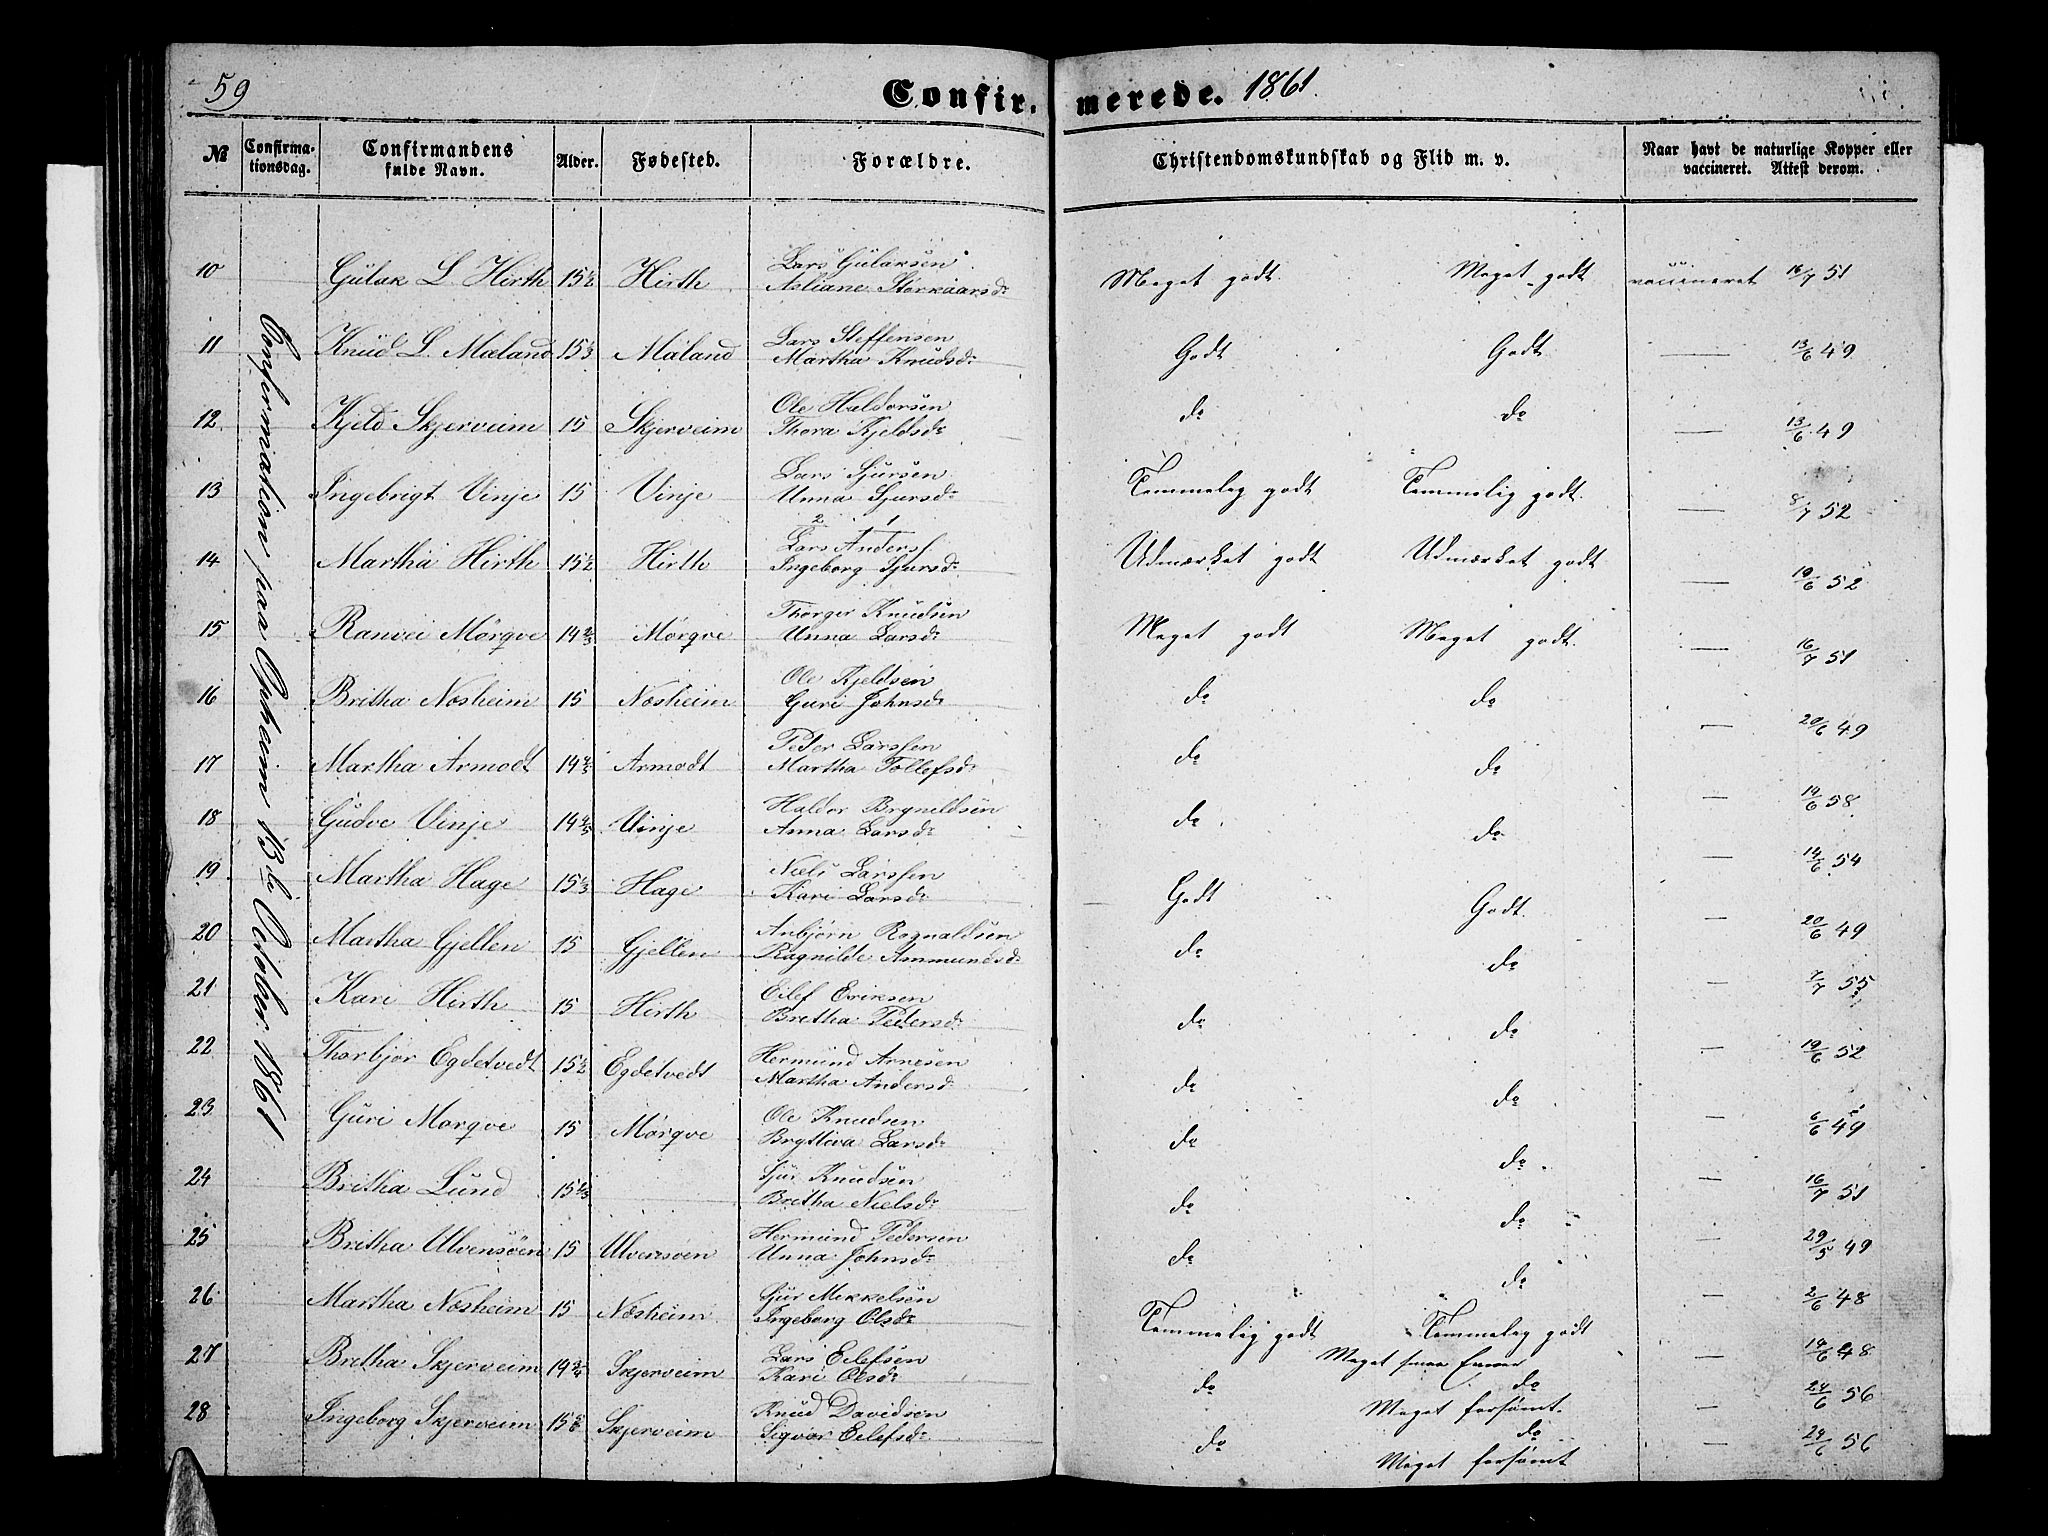 59
Confir-
merede. 1861
№
Confirma-
tionsdag.
Confirmandens
fulde Navn.
Alder.
Fødested.
Forældre.
Christendomskundskab og Flid m. v.
Naar havt de naturlige Kopper eller
vaccineret. Attest derom.
Confirmation paa Opheim 13de October 1861
10 Gulak L. Hirth 15½ Hirth Lars Gulaksen
Meget godt Meget godt vaccineret 16/7 51
11 Knud L. Mæland 15⅓ Mæland Lars Steffensen
Martha Knudsdr Godt Godt — 13/6 49
12 Kjeld Skjerveim 15 Skjerveim Ole Haldorsen
Thora Kjeldsdr do do — 13/6 49
13 Ingebrigt Vinje 15 Vinje Lars Sjursen
Unna Sjursdr Temmelig godt Temmelig godt. — 8/7 52
2 1
14 Martha Hirth 15½ Hirth Lars Anders
Ingeborg Sjursdr Udmærket godt Udmærket godt — 19/6 52
15 Ranvei Mörqve 14⅔ Mörqve Thorger Knudsen
Unna Larsdr Meget godt Meget godt. — 16/7 51
16 Britha Næsheim 15 Næsheim Ole Kjeldsen
Guri Johnsdr do do — 20/6 49
17 Martha Armodt 14⅔ Armodt Peder Larssen
Martha Tollefsdr do do — 19/6 58
18 Gudve Vinje Vinje Haldor Brynildsen
Anna Larsdr do do — 14/6 54
19 Martha Hage 15⅓ Hage Niels Larssen
Kari Larsdr Godt Godt. — 20/6 49
20 Martha Gjellen 15 Gjellen Anbjörn Rognaldsen
Ragnilde Ammundsdr do do — 7/7 55
21 Kari Hirth 15 Hirth Eilef Eriksen
Bretha Pedersdr do do — 19/6 52
22 Thorbjor Egdetvedt 15½ Egdetvedt Hermund Arnesen
Martha Andersdr do do — 6/6 49
23 Guri Mörqve 15 Mörqve Ole Knudsen
Larsdr do do — 16/7 51
24 Britha Lund 15⅓ Sjur Knudsen
Bretha Nielsdr do do — 29/5 49
25 Britha Ulvensöen 15 Ulvensöen Hermund Pedersen
Unna Johnsdr do do — 2/6 48
26 Martha Næsheim 15 Næsheim Sjur Mekkelsen
Ingeborg Olsdr Temmelig godt Temmelig godt — 19/6 48
Meget smaa Evner
27 Bretha Skjerveim 14¾ Skjerveim Lars Eilefsen
Kari Olsdr do do — 24/6 56
Meget forsömt.
28 Ingeborg Skjerveim Skjerveim Knud Davidsen
Sigvor Eilefsdr do do — 24/6 56
Meget forsömt